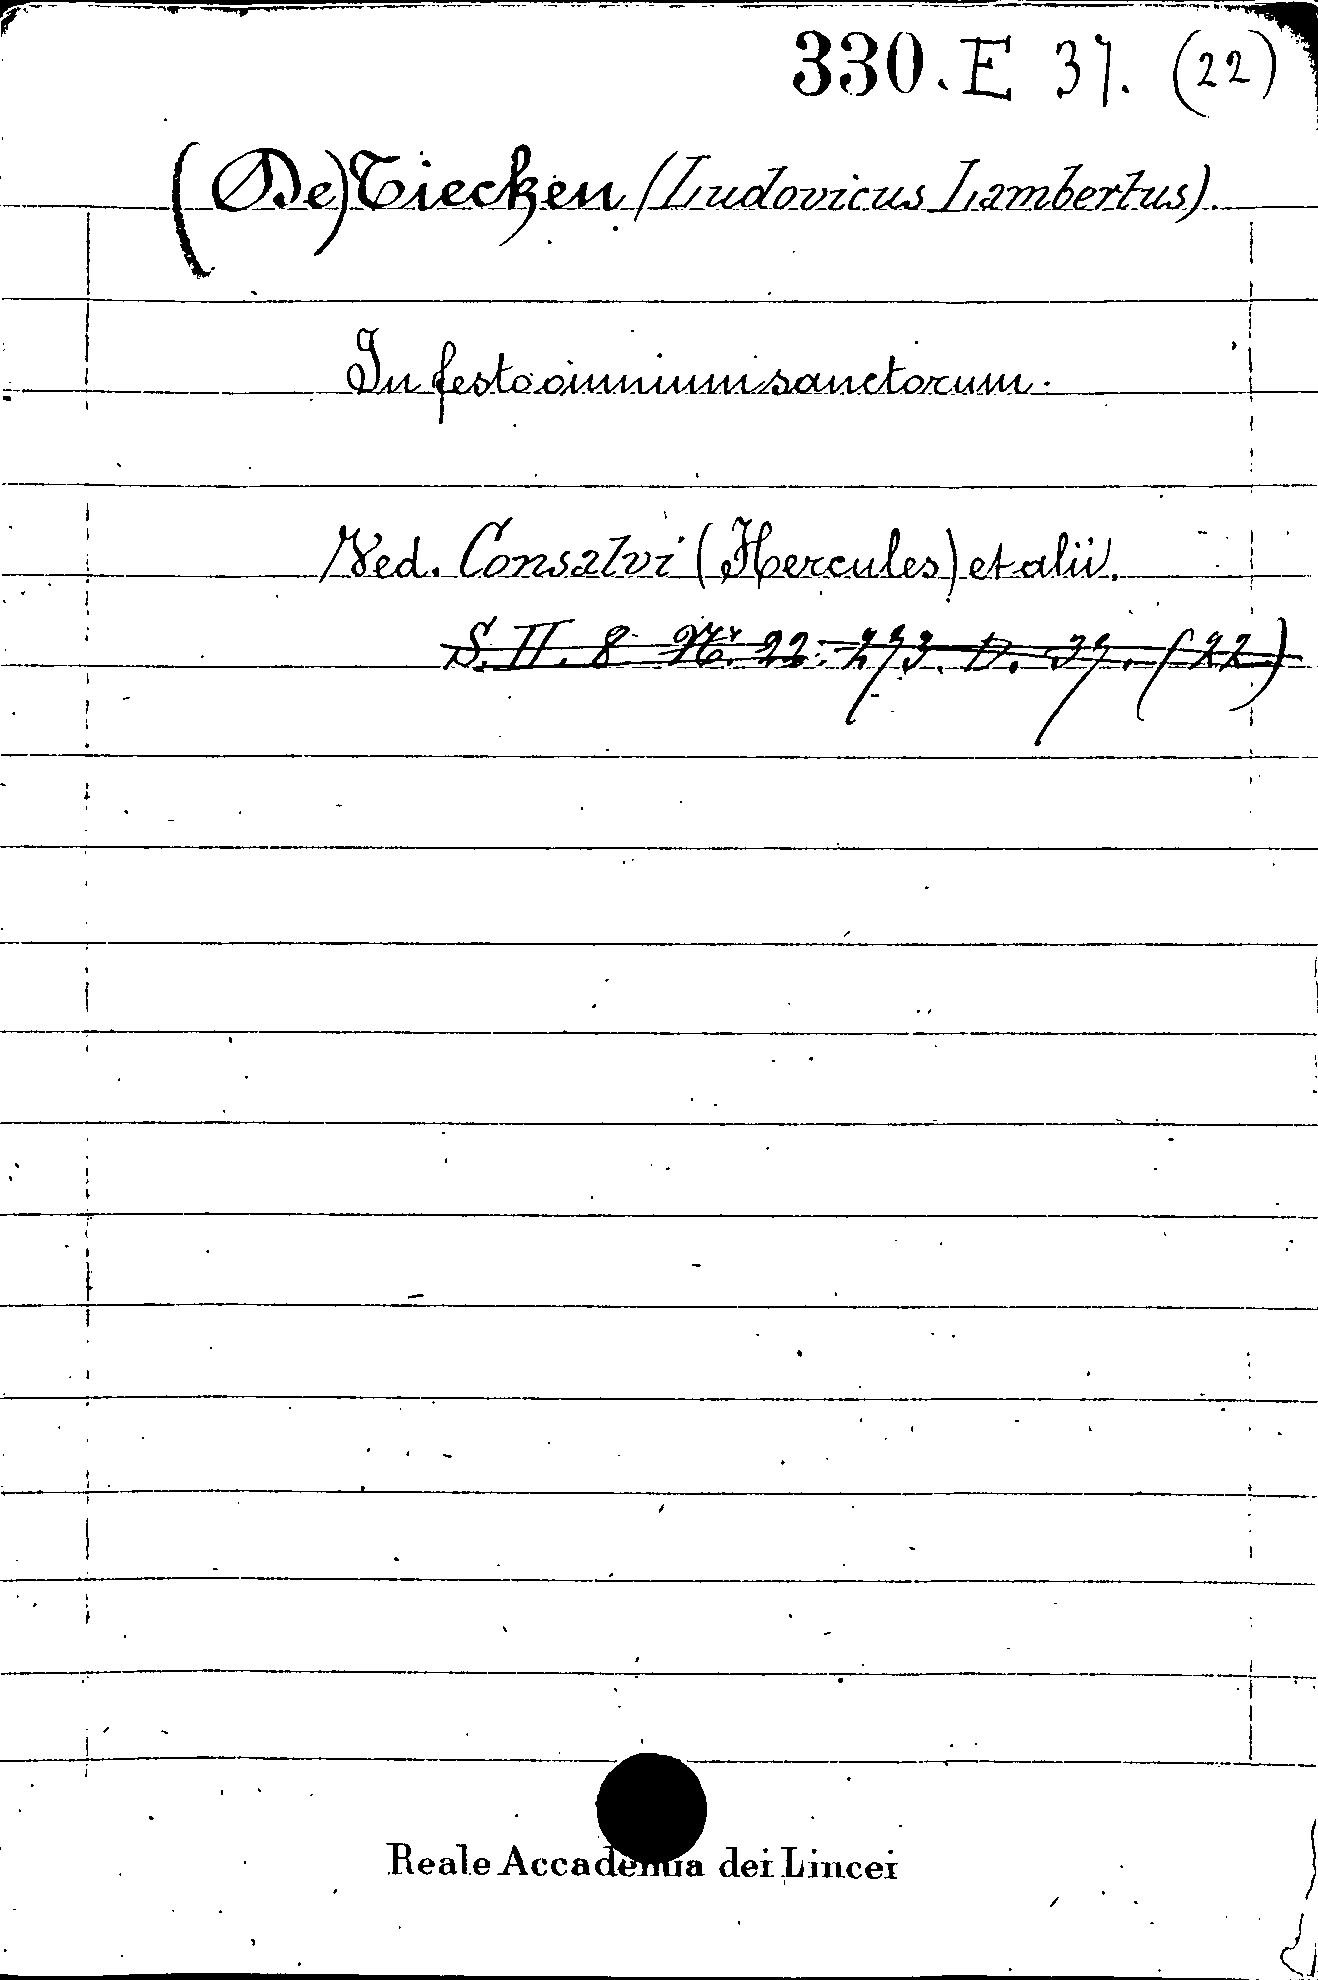 330. E 37. (22)
(De) Tiecken (Ludovicus Lambertus).
In festo omnium sanctorum.
Ved. Consalvi (Hercules) et alii.
S. II. 8 Nr. 22: 273. D. 37. (22)
Reale Accademia dei Lincei